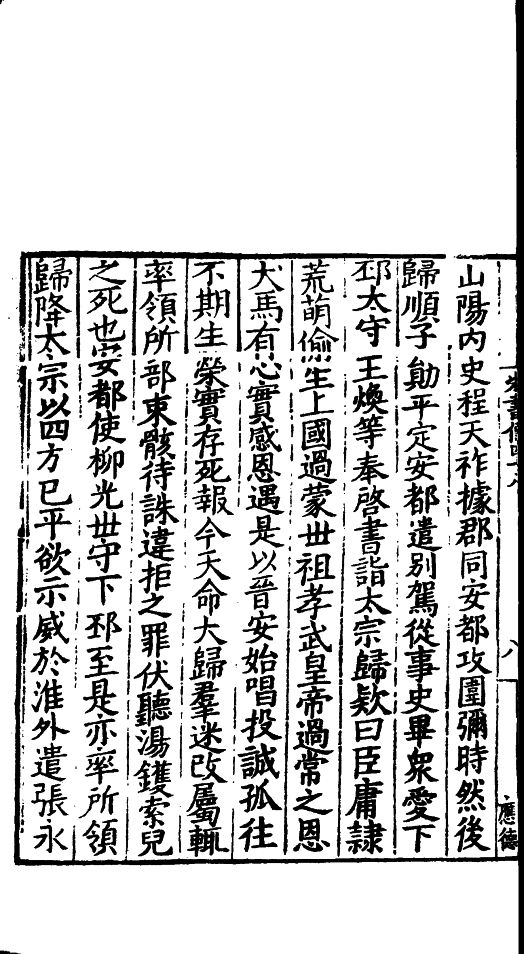 山陽内史程天祚據郡同安都攻圍彌時然後
歸順子勛平定安都遣别駕從事史畢衆愛下
邳太守王煥等奉啓書詣太宗歸欵曰臣庸隷
荒萌偷生上國過蒙世祖孝武皇帝過常之恩
犬馬有心實感恩遇是以晉安始唱投誠孤往
不期生榮實存死報今天命大歸羣迷改屬輒
率領所部束骸待誅違拒之罪伏聽湯鑊索兒
之死也安都使柳光世守下邳至是亦率所領
歸降太宗以四方已平欲示威於淮外遣張永
八
應德